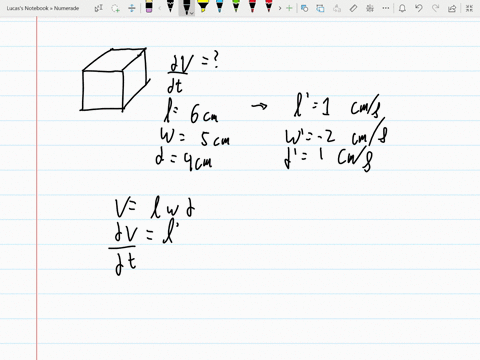 Lucas's Notebook » Numerade
dV/dt = ?
l = 6 cm → l' = 1 cm/s
w = 5 cm w' = -2 cm/s
d = 4 cm d' = 1 cm/s
V = l w d
dV/dt = l'